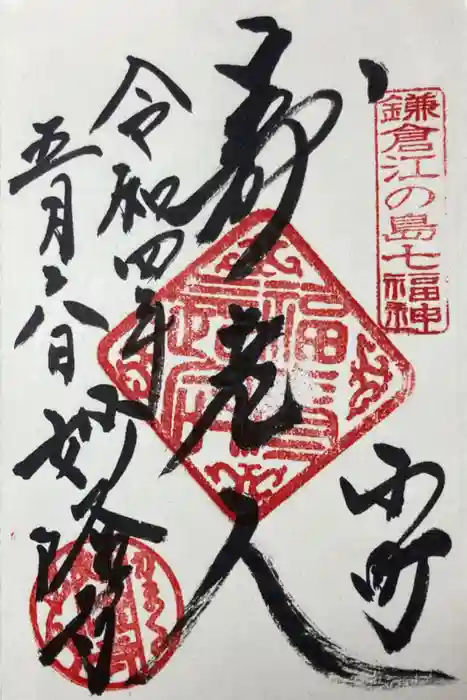 鎌倉江の島七福神
小町
寿老人
令和四年
五月六日
妙隆寺